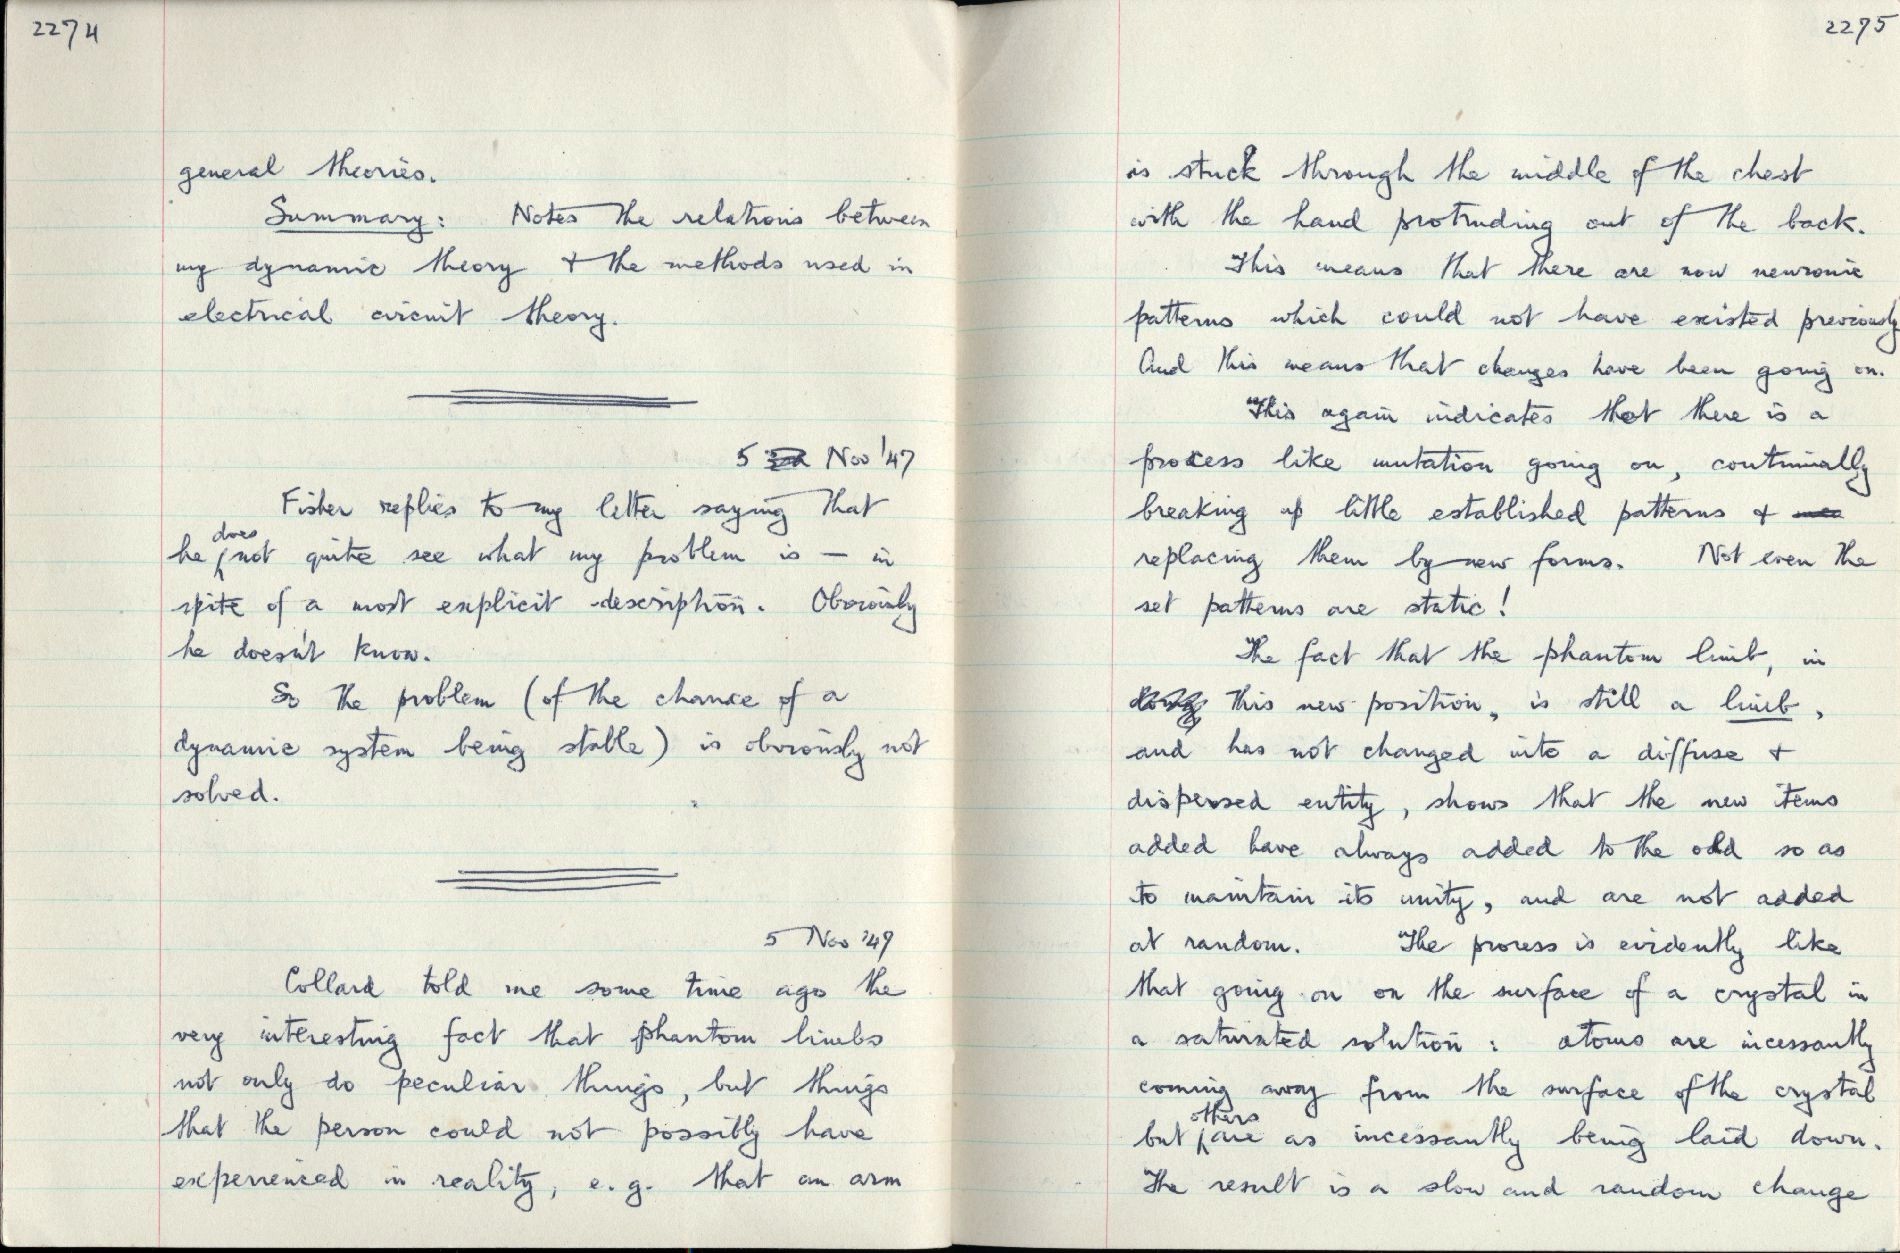 2274
general theories.
Summary: Notes the relations between
my dynamic theory & the methods used in
electrical circuit theory.
5 Nov '47
Fisher replies to my letter saying that
he does not quite see what my problem is — in
spite of a most explicit description. Obviously
he doesn't know.
So the problem (of the chance of a
dynamic system being stable) is obviously not
solved.
5 Nov '47
Collard told me some time ago the
very interesting fact that phantom limbs
not only do peculiar things, but things
that the person could not possibly have
experienced in reality, e.g. that an arm
2275
is stuck through the middle of the chest
with the hand protruding out of the back.
This means that there are now neuronic
patterns which could not have existed previously
And this means that changes have been going on.
This again indicates that there is a
process like mutation going on, continually
breaking up little established patterns &
replacing them by new forms. Not even the
set patterns are static!
The fact that the phantom limb, in
this new position, is still a limb,
and has not changed into a diffuse &
dispersed entity, shows that the new items
added have always added to the old so as
to maintain its unity, and are not added
at random. The process is evidently like
that going on on the surface of a crystal in
a saturated solution: atoms are incessantly
coming away from the surface of the crystal
but others are as incessantly being laid down.
The result is a slow and random change